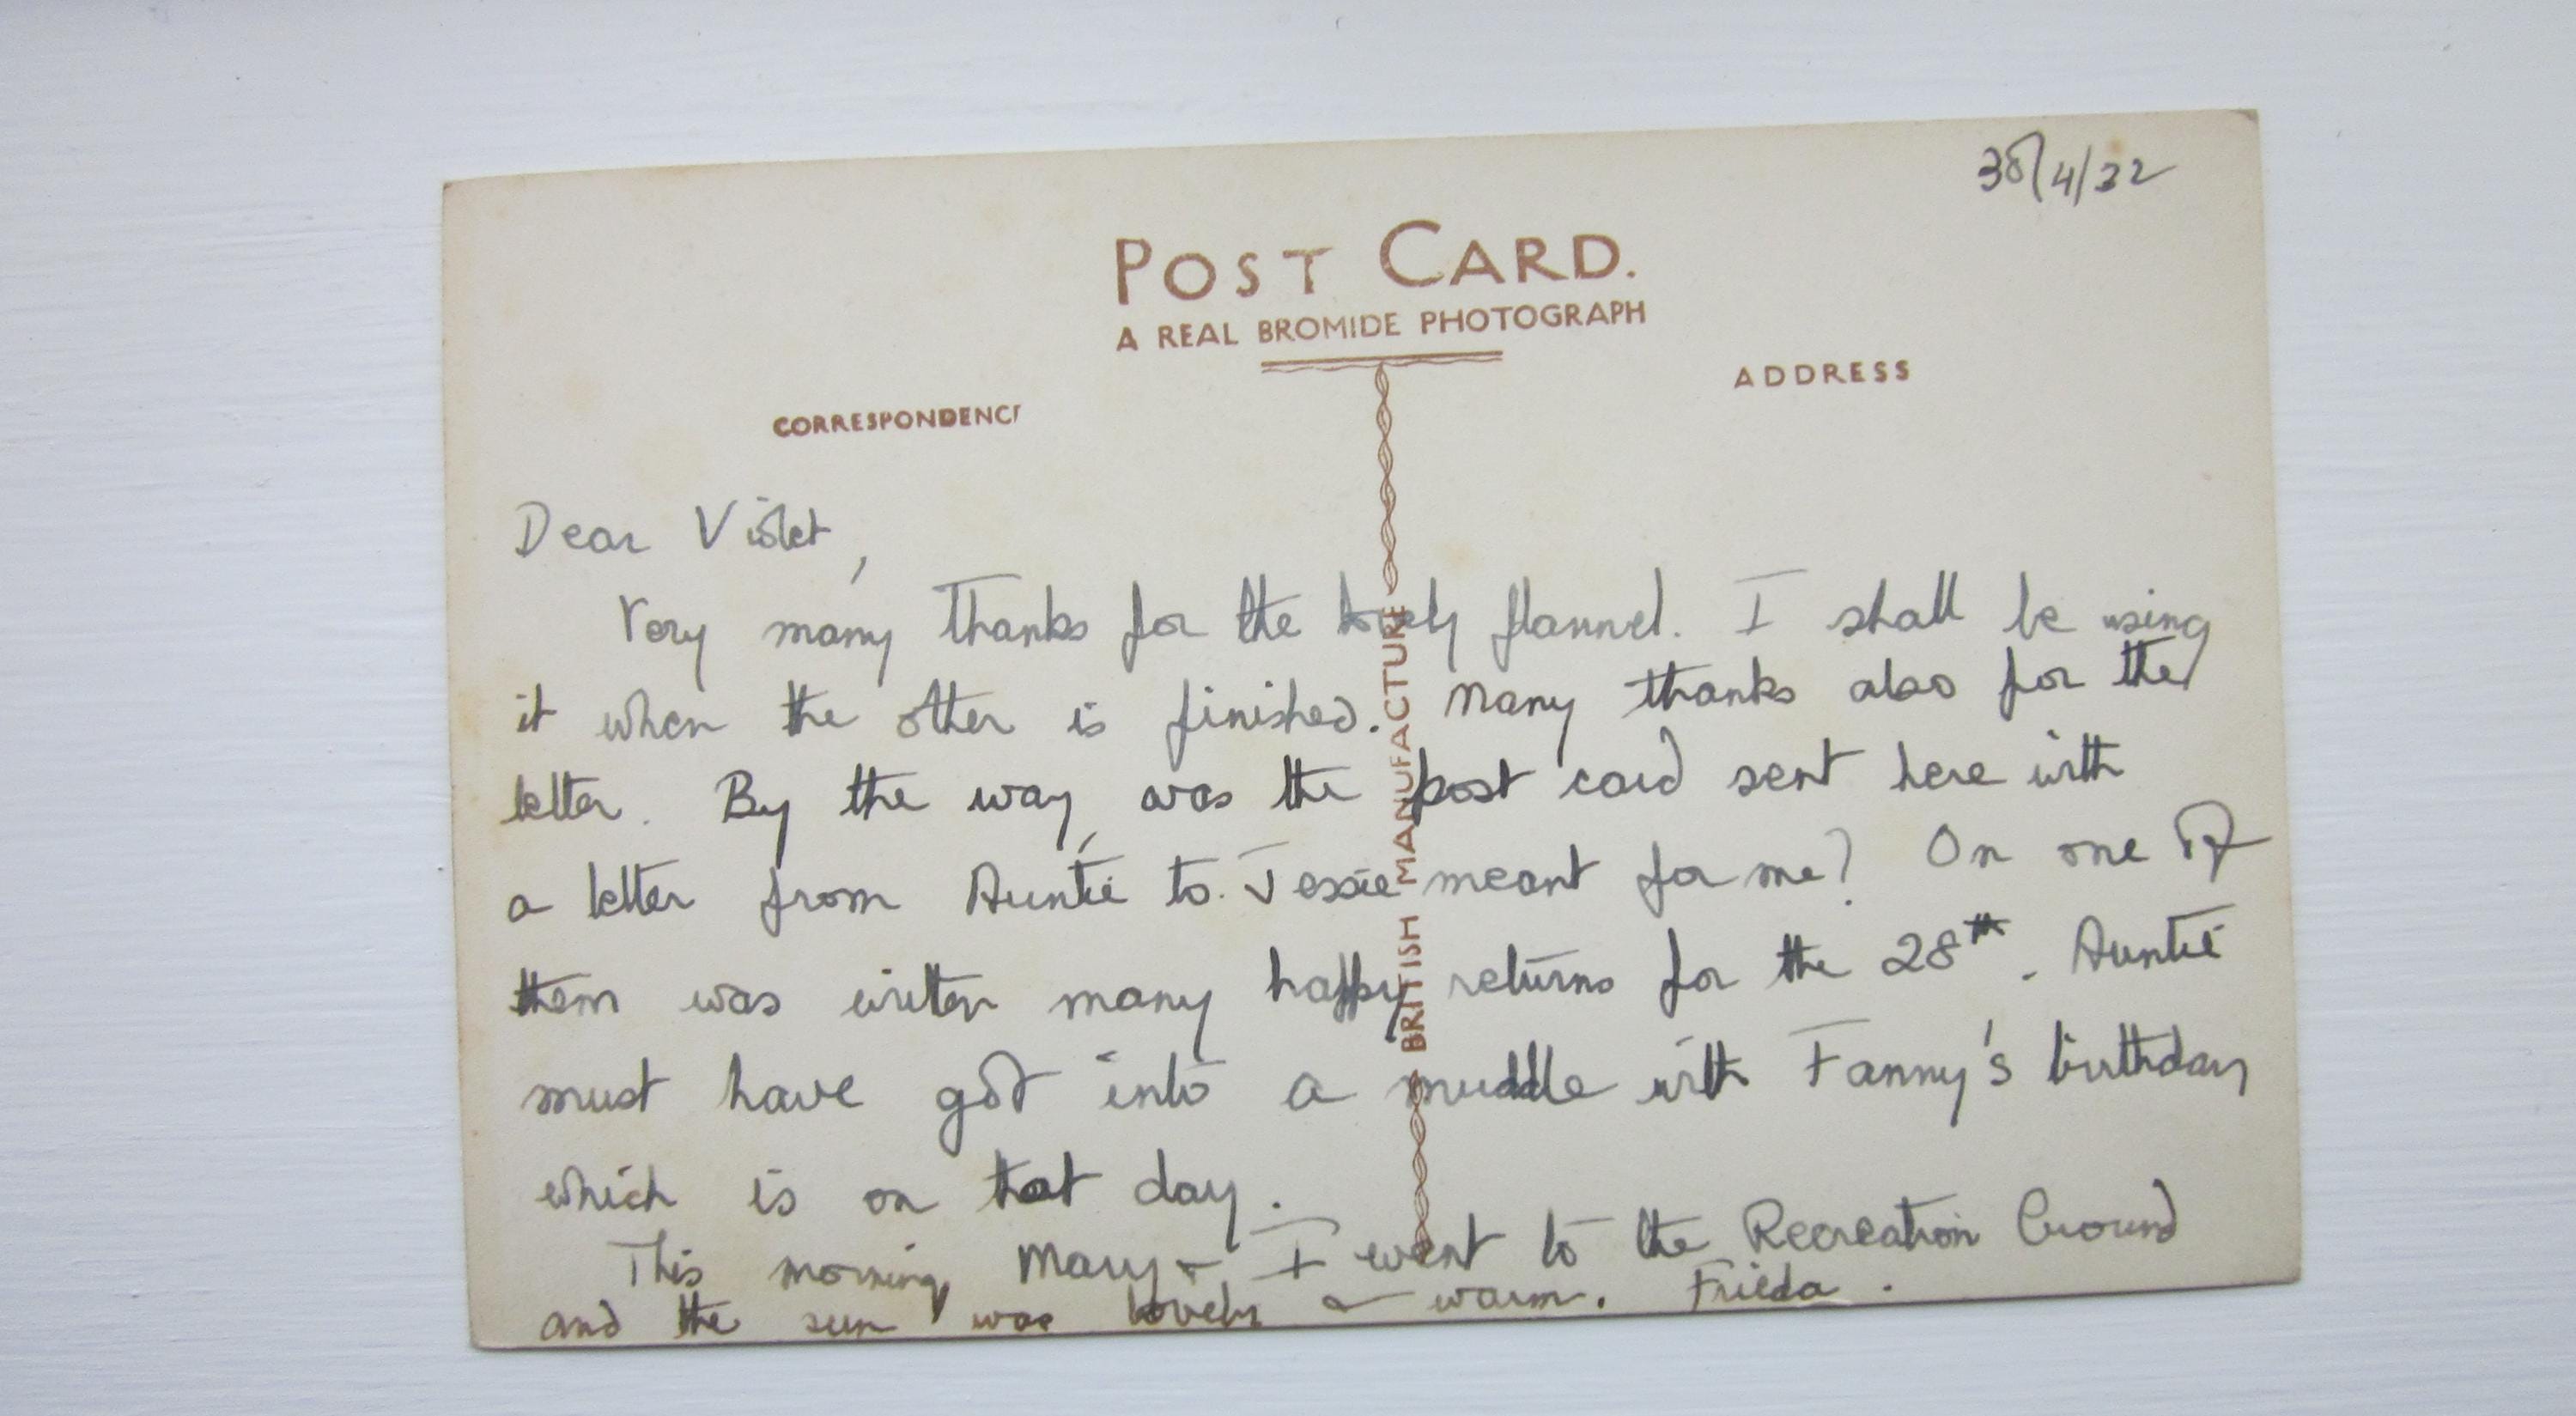 30/4/32
POST CARD.
A REAL BROMIDE PHOTOGRAPH
CORRESPONDENCE
ADDRESS
BRITISH MANUFACTURE
Dear Violet,
Very many thanks for the lovely flannel. I shall be using
it when the other is finished. Many thanks also for the
letter. By the way, was the post card sent here with
a letter from Auntie to Jessie meant for me? On one of
them was writen many happy returns for the 28th. Auntie
must have got into a muddle with Fanny's birthday
which is on that day.
This morning Mary & I went to the Recreation Ground
and the sun was lovely & warm. Frieda.